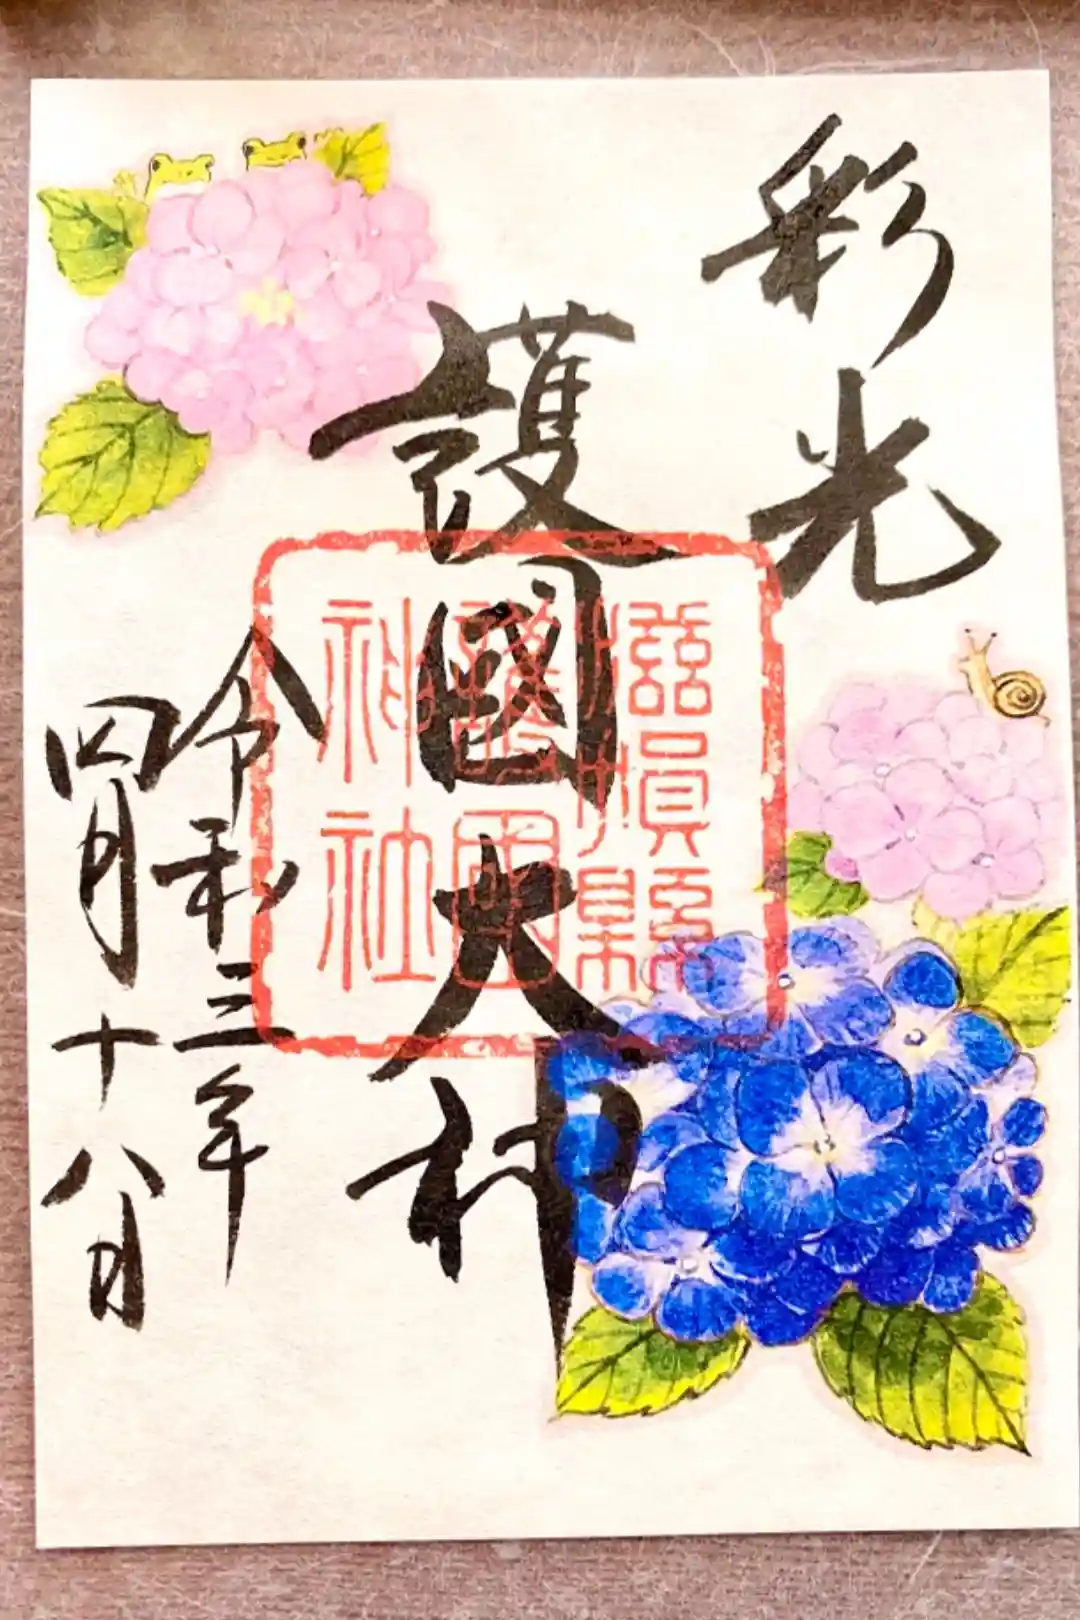 彩光
護國大神
令和三年
四月十八日
滋賀縣
護國
神社